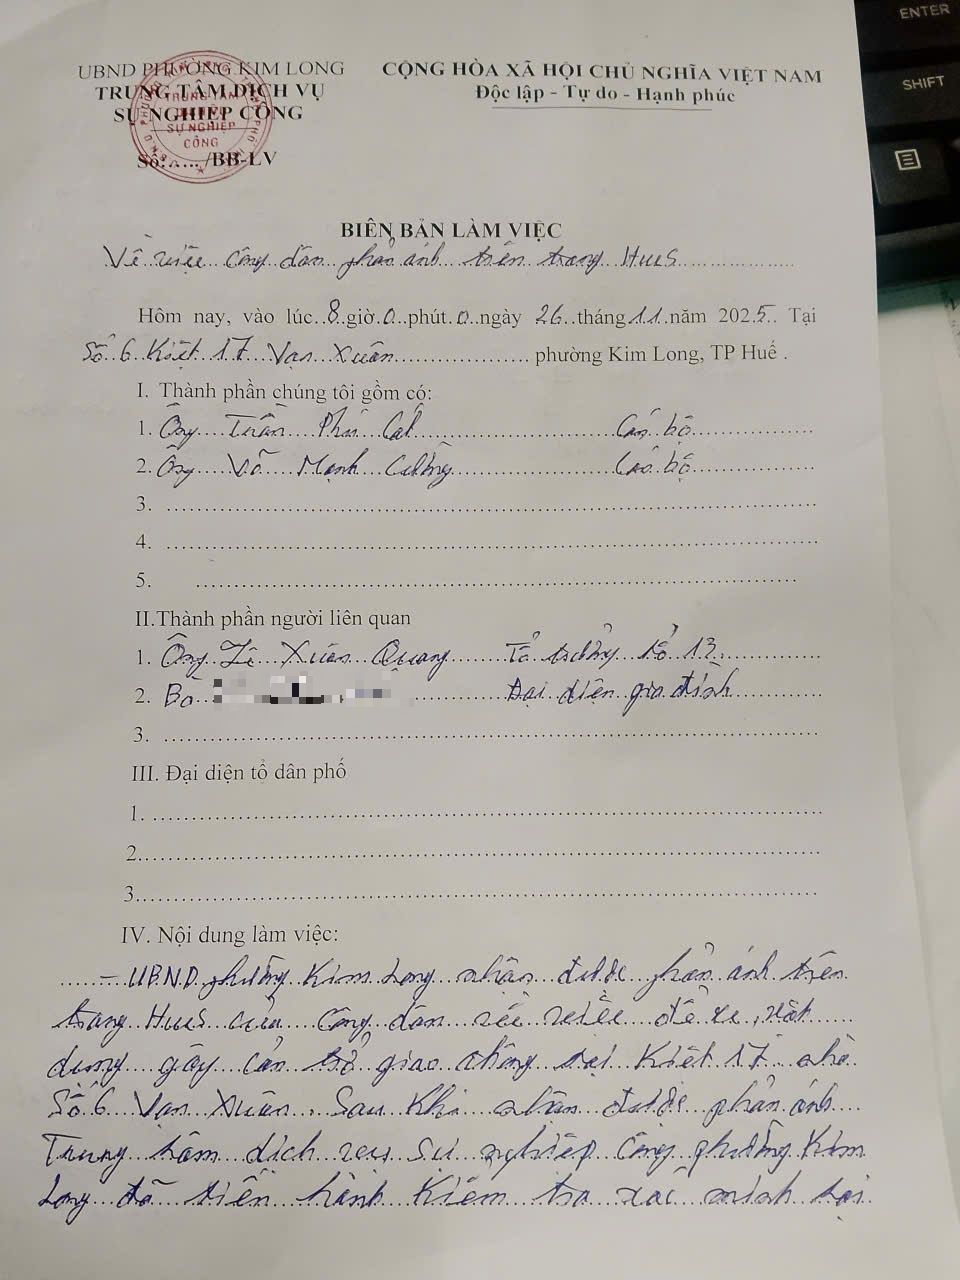 UBND PHƯỜNG KIM LONG
TRUNG TÂM DỊCH VỤ
SỰ NGHIỆP CÔNG
Số:...... /BB-LV
CỘNG HÒA XÃ HỘI CHỦ NGHĨA VIỆT NAM
Độc lập - Tự do - Hạnh phúc
TRUNG TÂM
SỰ NGHIỆP
CÔNG
BIÊN BẢN LÀM VIỆC
Về việc công dân phản ánh trên trang HueS
Hôm nay, vào lúc 8 giờ 0 phút 0 ngày 26 tháng 11 năm 2025 Tại
Số 6 Kiệt 17 Vạn Xuân phường Kim Long, TP Huế .
I. Thành phần chúng tôi gồm có:
1. Ông Trần Phú Cát Cán bộ
2. Ông Võ Mạnh Cường Cán bộ
3.
4.
5.
II.Thành phần người liên quan
1. Ông Lê Xuân Quang Tổ trưởng tổ 13
2. Bà Đại diện gia đình
3.
III. Đại diện tổ dân phố
1.
2.
3.
IV. Nội dung làm việc:
- UBND phường Kim Long nhận được phản ánh trên
trang HueS của công dân về việc để xe, vật
dụng gây cản trở giao thông tại Kiệt 17 nhà
Số 6 Vạn Xuân. Sau khi nhận được phản ánh
Trung tâm dịch vụ Sự nghiệp Công phường Kim
Long đã tiến hành kiểm tra xác minh tại
ENTER
SHIFT